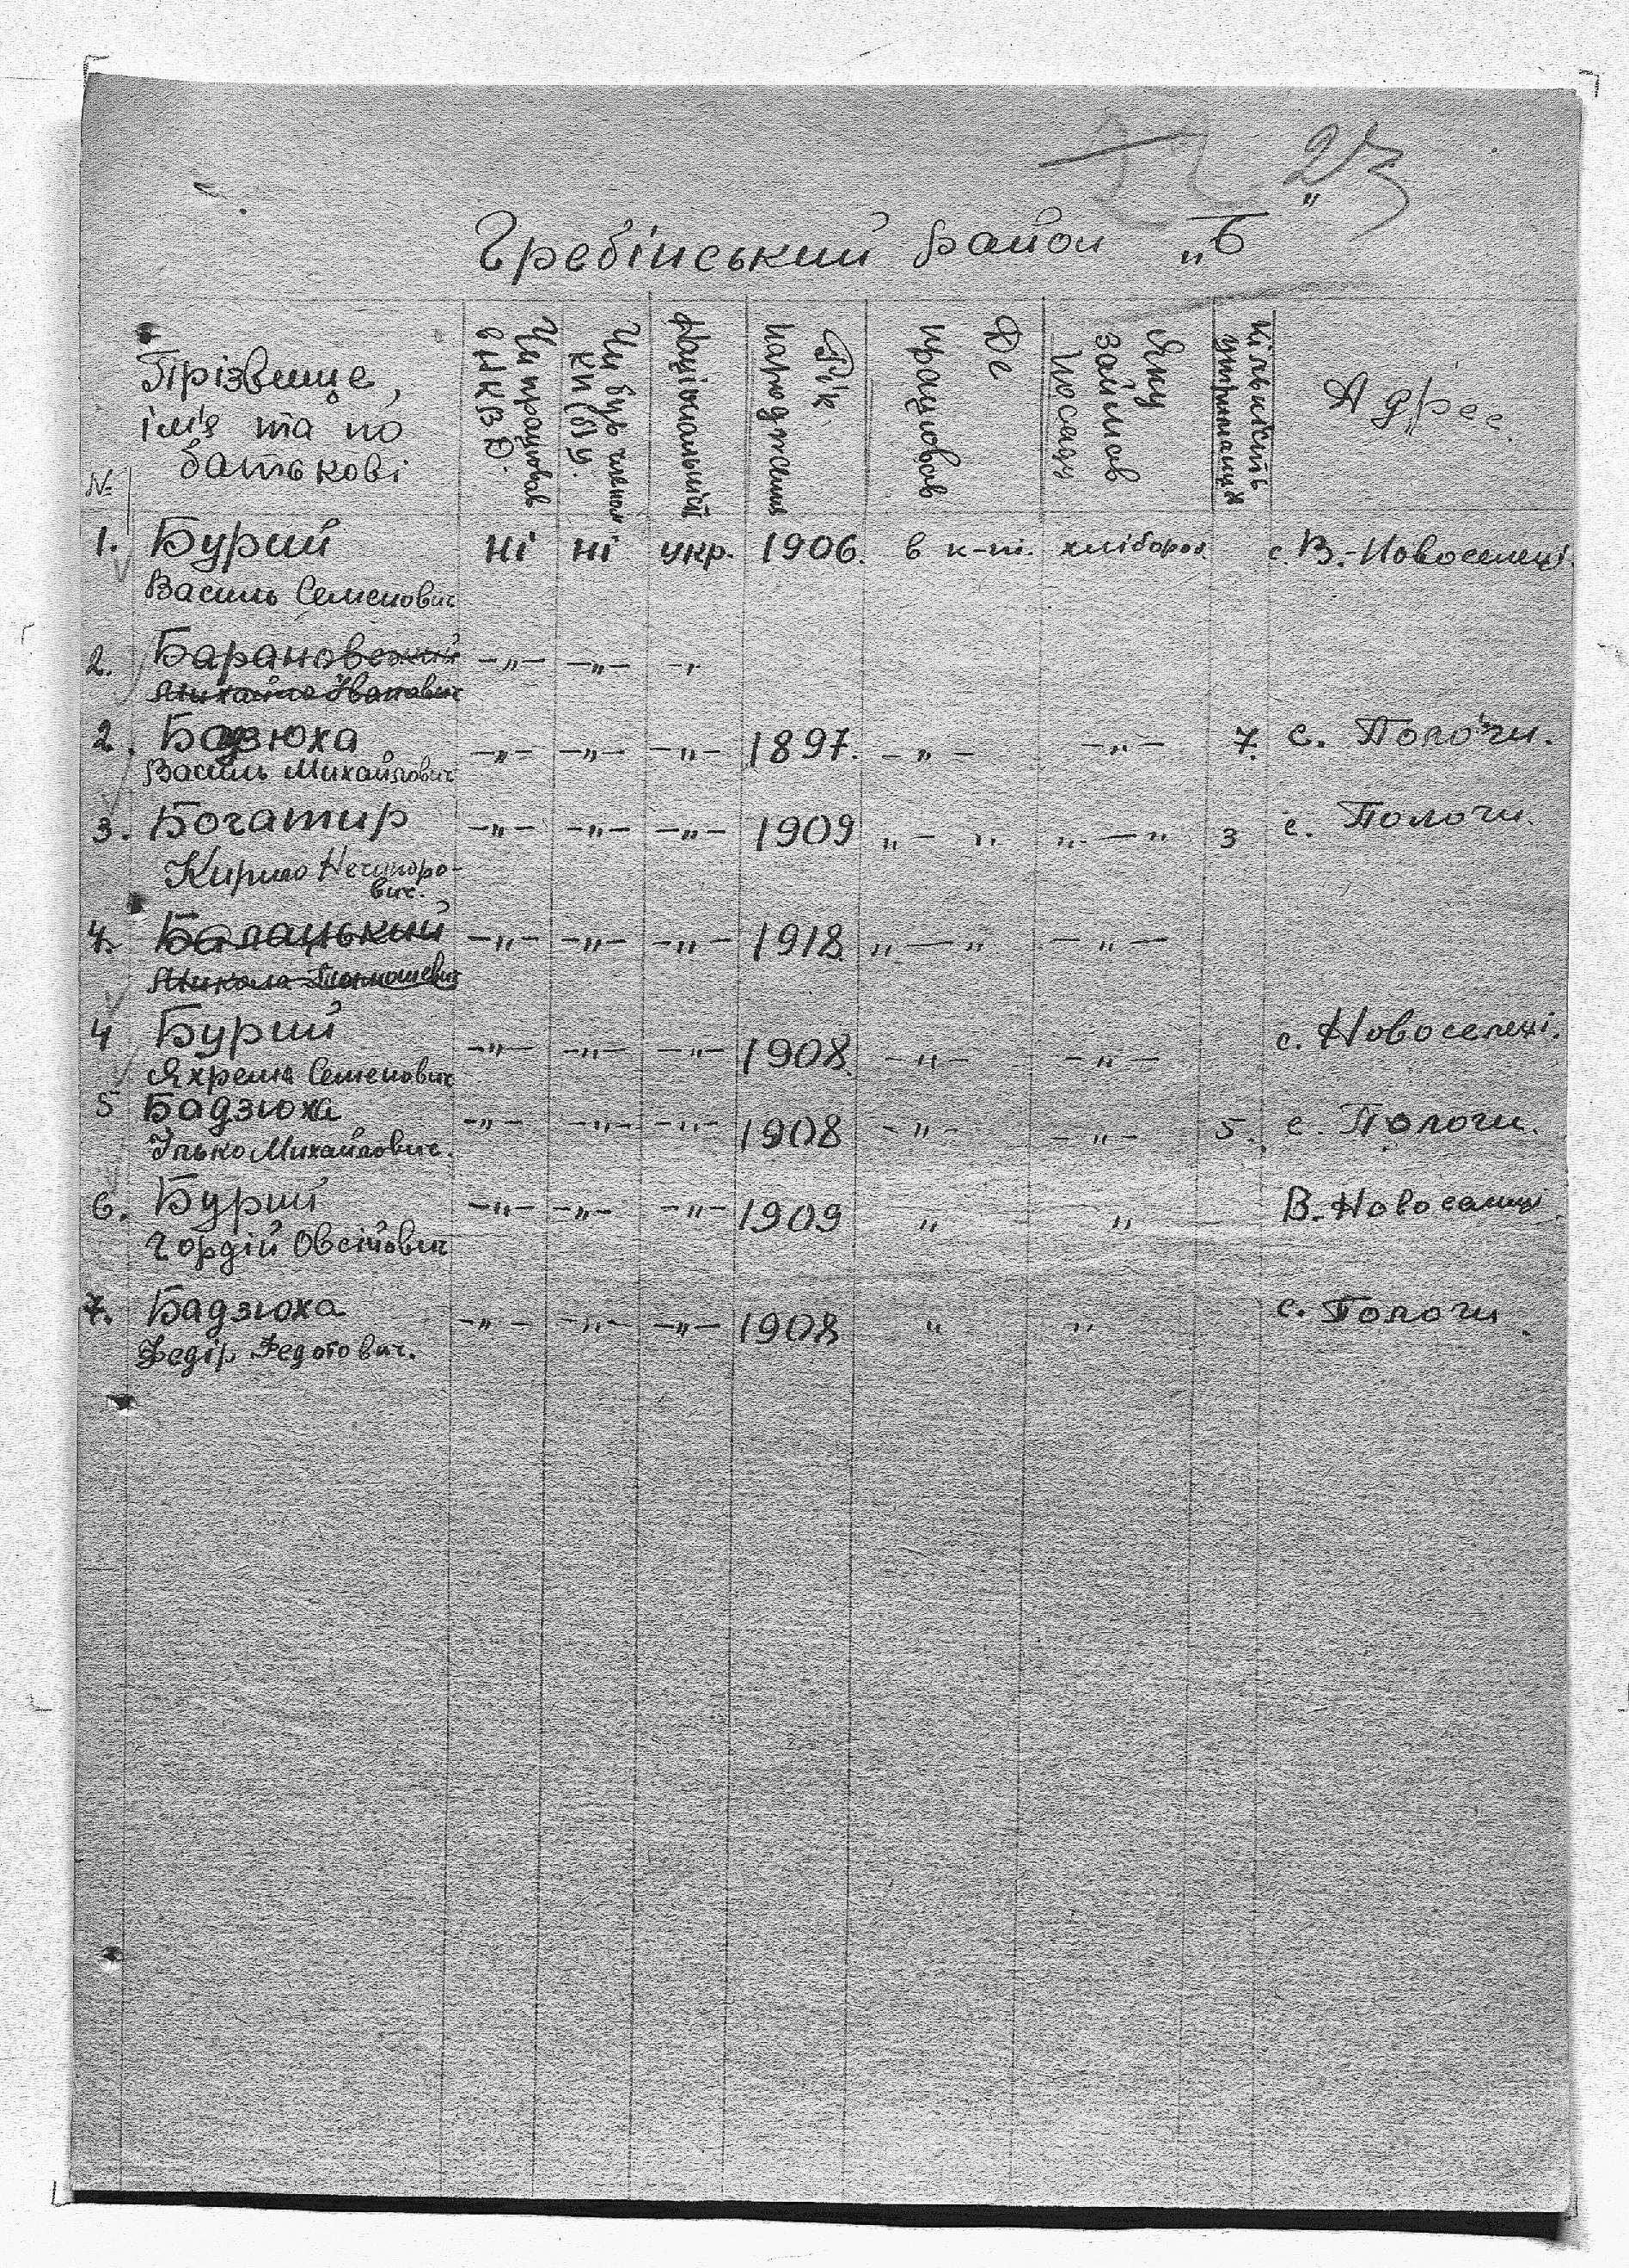 23
Гребінський район „Б"
№
Прізвище,
ім'я та по
батькові
Чи працював
в НКВД.
Чи був членом
КП(б)У.
Національність
Рік
народження
Де
працював
Яку
займав
посаду
Кількість
утриманців
Адрес.
1. Бурий ні ні укр. 1906. в к-пі. хлібороб с. В.-Новоселеці.
Василь Семенович
2. Барановський -„- -„- -„
Михайло Іванович
2. Бадзюха -„- -„- -„- 1897. -„- -„- 7. с. Пологи.
Василь Михайлович
3. Богатир -„- -„- -„- 1909 „-„ „-„ 3 с. Пологи.
Кирило Нечипоро-
вич.
4. Балацький -„- -„- -„- 1918. „-„ -„-
Микола
4 Бурий -„- -„- -„- 1908. -„- -„- с. Новоселеці.
Яхрема Семенович
5 Бадзюха -„- -„- -„- 1908 -„- -„- 5. с. Пологи.
Ілько Михайлович.
6. Бурий -„- -„- -„- 1909 „ „ В.-Новоселиці
Гордій Овсійович
7. Бадзюха -„- -„- -„- 1908 „ „ с. Пологи.
Федір Федотович.